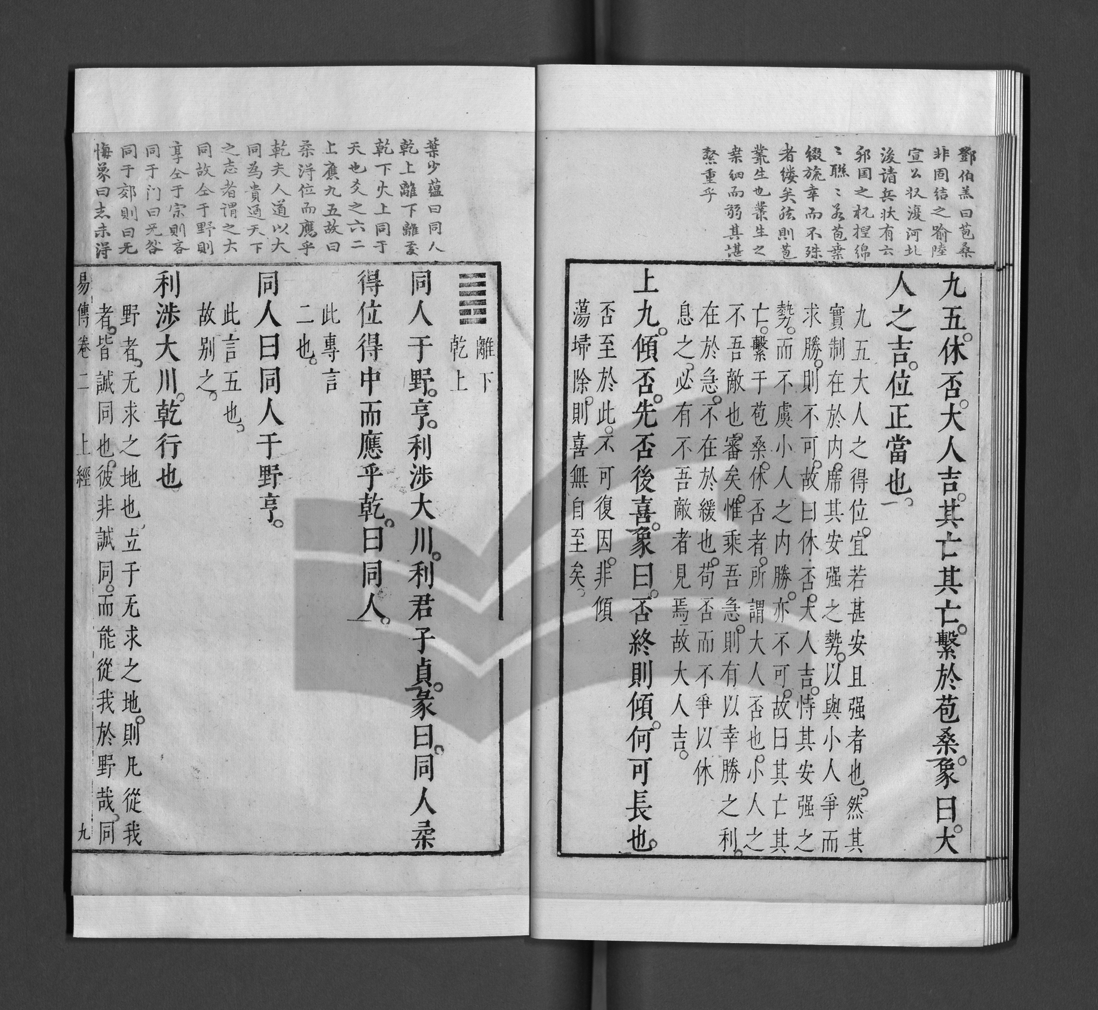 鄧伯羔曰苞桑
非固結之喻陸
宣公収復河北
後請兵狀有云
邦國之杌捏綿
〻聯〻若苞桒
綴旒幸而不殊
者屢矣然則苞
叢生也叢生之
桒細而弱其堪
繫重乎
九五。休否。大人吉。其亡其亡。繫於苞桑。象曰。大
人之吉。位正當也。
九五大人之得位。宜若甚安且强者也。然其
實制在於内。席其安强之勢。以與小人爭而
求勝。則不可。故曰休否。大人吉。恃其安强之
勢。而不虞小人之内勝。亦不可。故曰其亡其
亡。繫于苞桑。休否者。所謂大人否也。小人之
不吾敵也審矣。惟乘吾急。則有以幸勝之利。
在於急。不在於緩也。苟否而不爭以休
息之。必有不吾敵者見焉。故大人吉。
上九。傾否。先否後喜。象曰。否終則傾。何可長也。
否至於此。不可復因。非傾
蕩埽除。則喜無自至矣。
葉少蘊曰同人
乾上離下離
乾下火上同于
天也爻之六二
上應九五故曰
柔得位而應乎
乾夫人道以大
同為貴通天下
之志者謂之大
同故仝于野則
亨仝于宗則吝
同于门曰无咎
同于郊則曰无
悔象曰志未得
離下
乾上
同人于野。亨。利涉大川。利君子貞。彖曰。同人柔
得位得中而應乎乾。曰同人。
此專言
二也。
同人曰同人于野亨。
此言五也。
故别之。
利涉大川。乾行也
野者。无求之地也。立于无求之地。則凡從我
者。皆誠同也。彼非誠同。而能從我於野哉。同
易傳卷二 上經 九